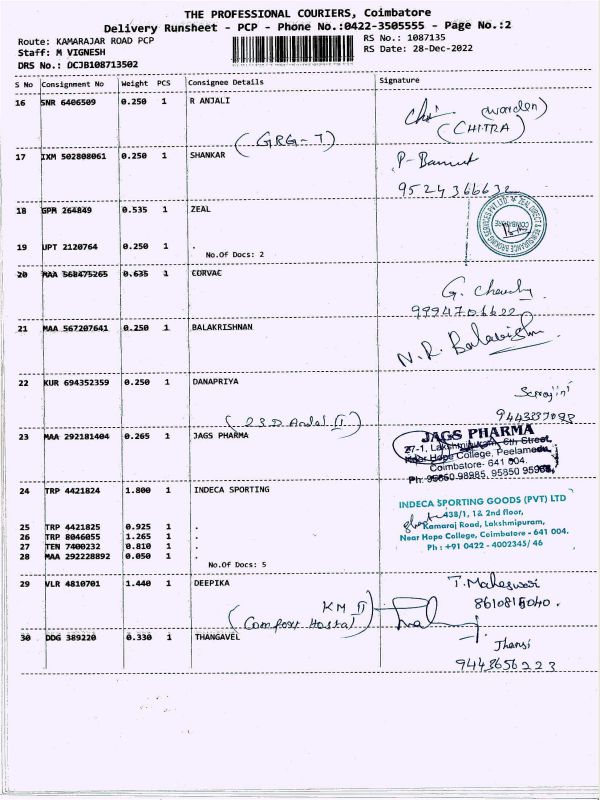 THE PROFESSIONAL COURIERS, Coimbatore
Delivery Runsheet - PCP - Phone No.:0422-3505555 - Page No.:2
Route: KAMARAJAR ROAD PCP
RS No.: 1087135
Staff: M VIGNESH
RS Date: 28-Dec-2022
DRS No.: DCJB108713502
S No Consignment No Weight PCS Consignee Details Signature
16 SNR 6406509 0.250 1 R ANJALI
(warden)
(CHITRA)
(GRG-7)
17 IXM 502808061 0.250 1 SHANKAR
9524366632
18 GPM 264849 0.535 1 ZEAL
19 UPT 2120764 0.250 1 .
No.Of Docs: 2
COIMBATORE
20 MAA 568475265 0.635 1 CORVAC
G.
9994706622
21 MAA 567207641 0.250 1 BALAKRISHNAN
N.R.
22 KUR 694352359 0.250 1 DANAPRIYA
Sarojini
23 MAA 292181404 0.265 1 JAGS PHARMA
JAGS PHARMA
27-1, Lakshmipuram, 6th Street,
Near Hope College, Peelamedu,
Coimbatore- 641 004.
Ph: 95850 98985, 95850 95985,
24 TRP 4421824 1.800 1 INDECA SPORTING
INDECA SPORTING GOODS (PVT) LTD
438/1, 1& 2nd floor,
Kamaraj Road, Lakshmipuram,
Near Hope College, Coimbatore - 641 004.
Ph : +91 0422 - 4002345/ 46
25 TRP 4421825 0.925 1 .
26 TRP 8046055 1.265 1 .
27 TEN 7400232 0.810 1 .
28 MAA 292228892 0.050 1 .
No.Of Docs: 5
29 VLR 4810701 1.440 1 DEEPIKA
T. Maheswari
KM II
30 DDG 389220 0.330 1 THANGAVEL
Jhansi
9443656223